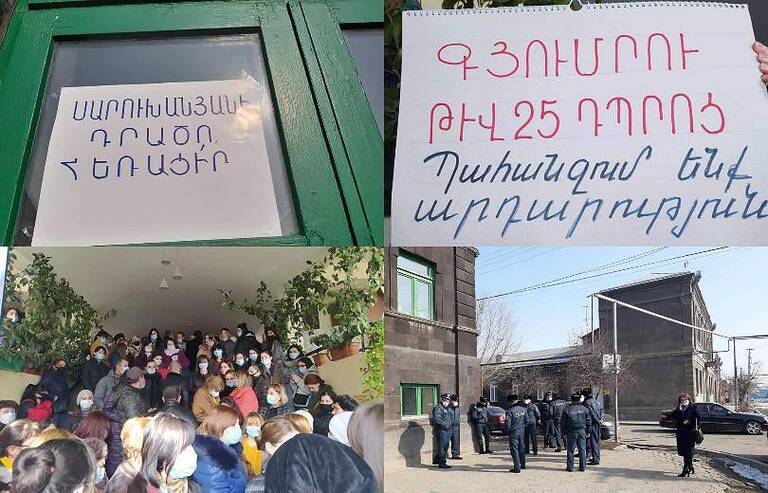 ՍԱՐՈՒԽԱՆՅԱՆԻ
ԴՐԱԾՈ,
ՀԵՌԱՑԻՐ
ԳՅՈՒՄՐՈՒ
ԹԻՎ 25 ԴՊՐՈՑ
Պահանջում ենք
արդարություն